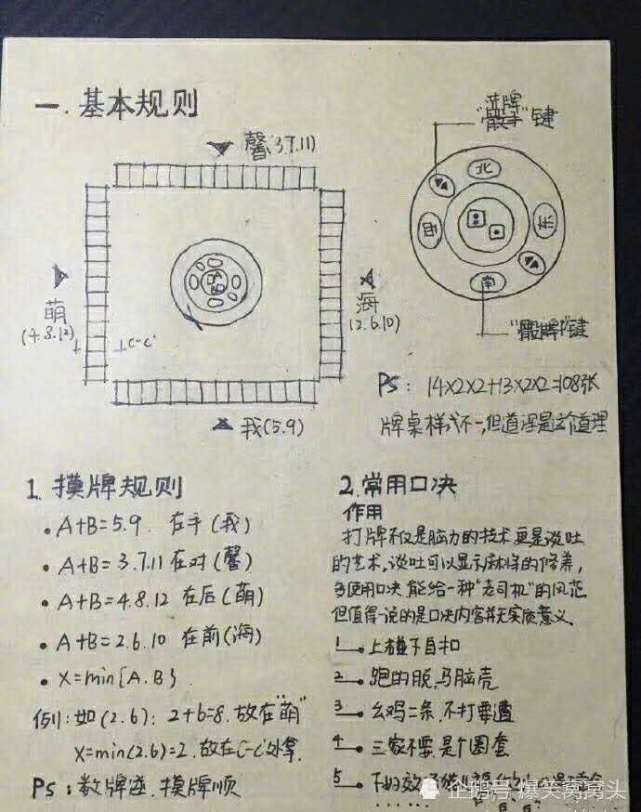 一.基本规则
馨(3.7.11)
萌
(4.8.12)
海
(2.6.10)
C-C'
我(5.9)
洗牌
"骰子"键
北
西
东
南
键
PS: 14×2×2+13×2×2=108张
牌桌样式不一,但道理是这个道理
1.摸牌规则
• A+B=5.9. 在手(我)
• A+B=3.7.11 在对(馨)
• A+B=4.8.12 在后(萌)
• A+B=2.6.10 在前(海)
• X=min{A.B}
例:如(2.6): 2+6=8.故在"萌"
X=min(2.6)=2.故在C-C'处拿.
PS:数牌逆.摸牌顺
2.常用口决
作用
打牌不仅是脑力的技术更是谈吐
的艺术.谈吐可以显示麻将的修养,
多使用口决 能给一种"老司机"的风范
但值得一说的是口决内容并无实质意义.
1 上碰下自扣
2 跑的脱,马脑壳
3 幺鸡二条,不打要遭
4 三家不要.是个圈套
5
企鹅号 爆笑窝窝头